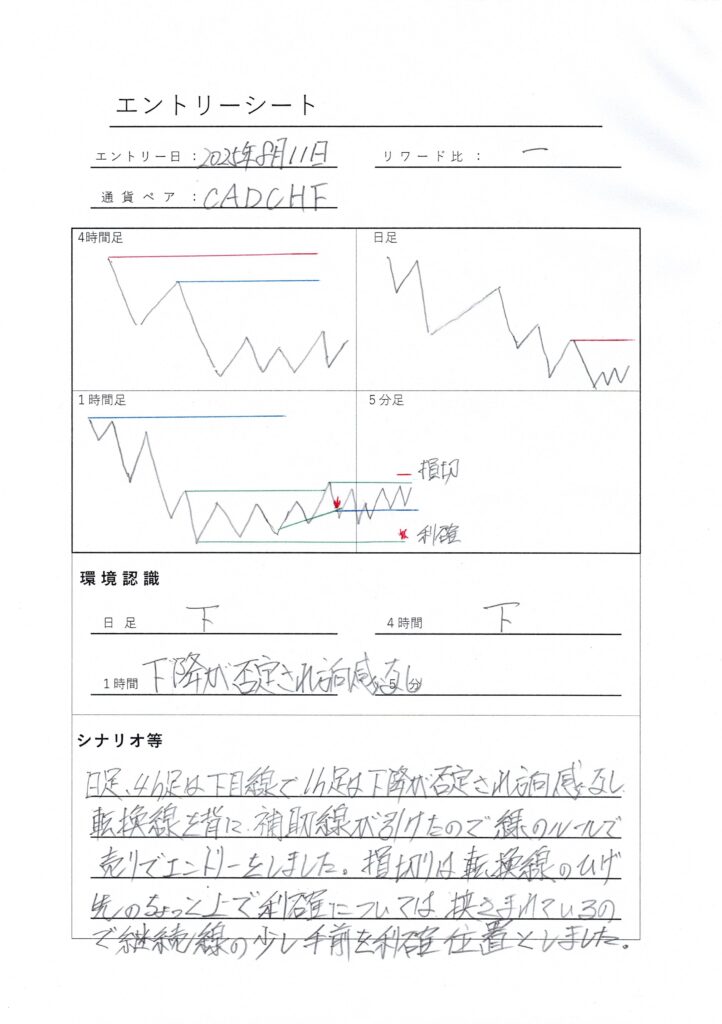 エントリーシート
エントリー日：2025年8月11日
リワード比：ー
通貨ペア：CADCHF
4時間足
日足
1時間足
5分足
損切
利確
環境認識
日足 下
4時間 下
1時間 下降が否定され方向感なし
5分
シナリオ等
日足、4h足は下目線で1h足は下降が否定され方向感なし
転換線を背に、補助線が引けたので緑のルールで
売りでエントリーをしました。損切りは転換線のひげ
先のちょっと上で利確については挟まれているの
で継続線の少し手前を利確位置としました。